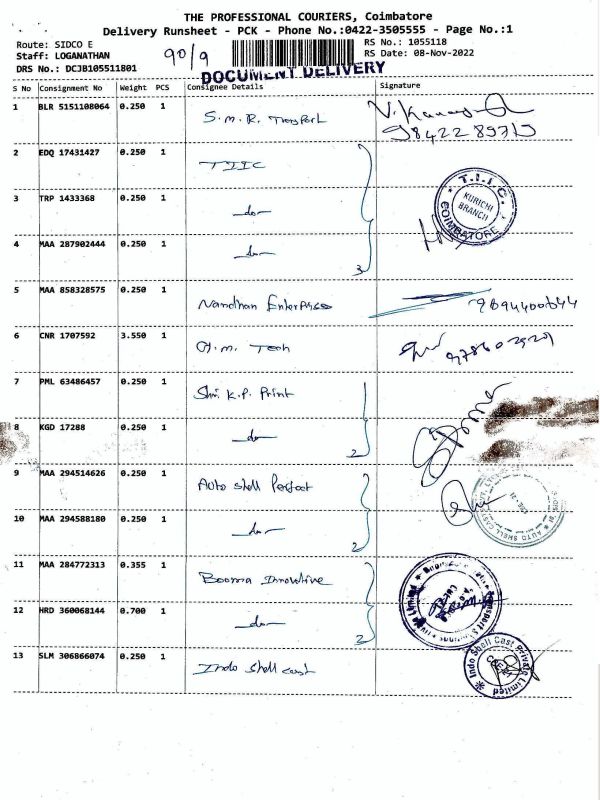 THE PROFESSIONAL COURIERS, Coimbatore
Delivery Runsheet - PCK - Phone No.:0422-3505555 - Page No.:1
Route: SIDCO E
RS No.: 1055118
Staff: LOGANATHAN
90/9
RS Date: 08-Nov-2022
DRS No.: DCJB105511801
DOCUMENT DELIVERY
S No Consignment No Weight PCS Consignee Details Signature
1 BLR 5151108064 0.250 1 S.M.R. Transport
2 EDQ 17431427 0.250 1 TIIC
3 TRP 1433368 0.250 1 -do-
T.I.I.C.
KURICHI
BRANCH
COIMBATORE
4 MAA 287902444 0.250 1 -do-
3
5 MAA 858328575 0.250 1 Nandhan Enterprises 9894400644
6 CNR 1707592 3.550 1 Tech
7 PML 63486457 0.250 1 Shri. K.P. Print
8 KGD 17288 0.250 1 -do-
2
9 MAA 294514626 0.250 1 Auto Shell Perfect
10 MAA 294588180 0.250 1 -do-
2
AUTO SHELL CAST
11 MAA 284772313 0.355 1 Booma Innovative
12 HRD 360068144 0.700 1 -do-
2
13 SLM 306866074 0.250 1 Indo Shell cast
Indo Shell Cast Private Limited